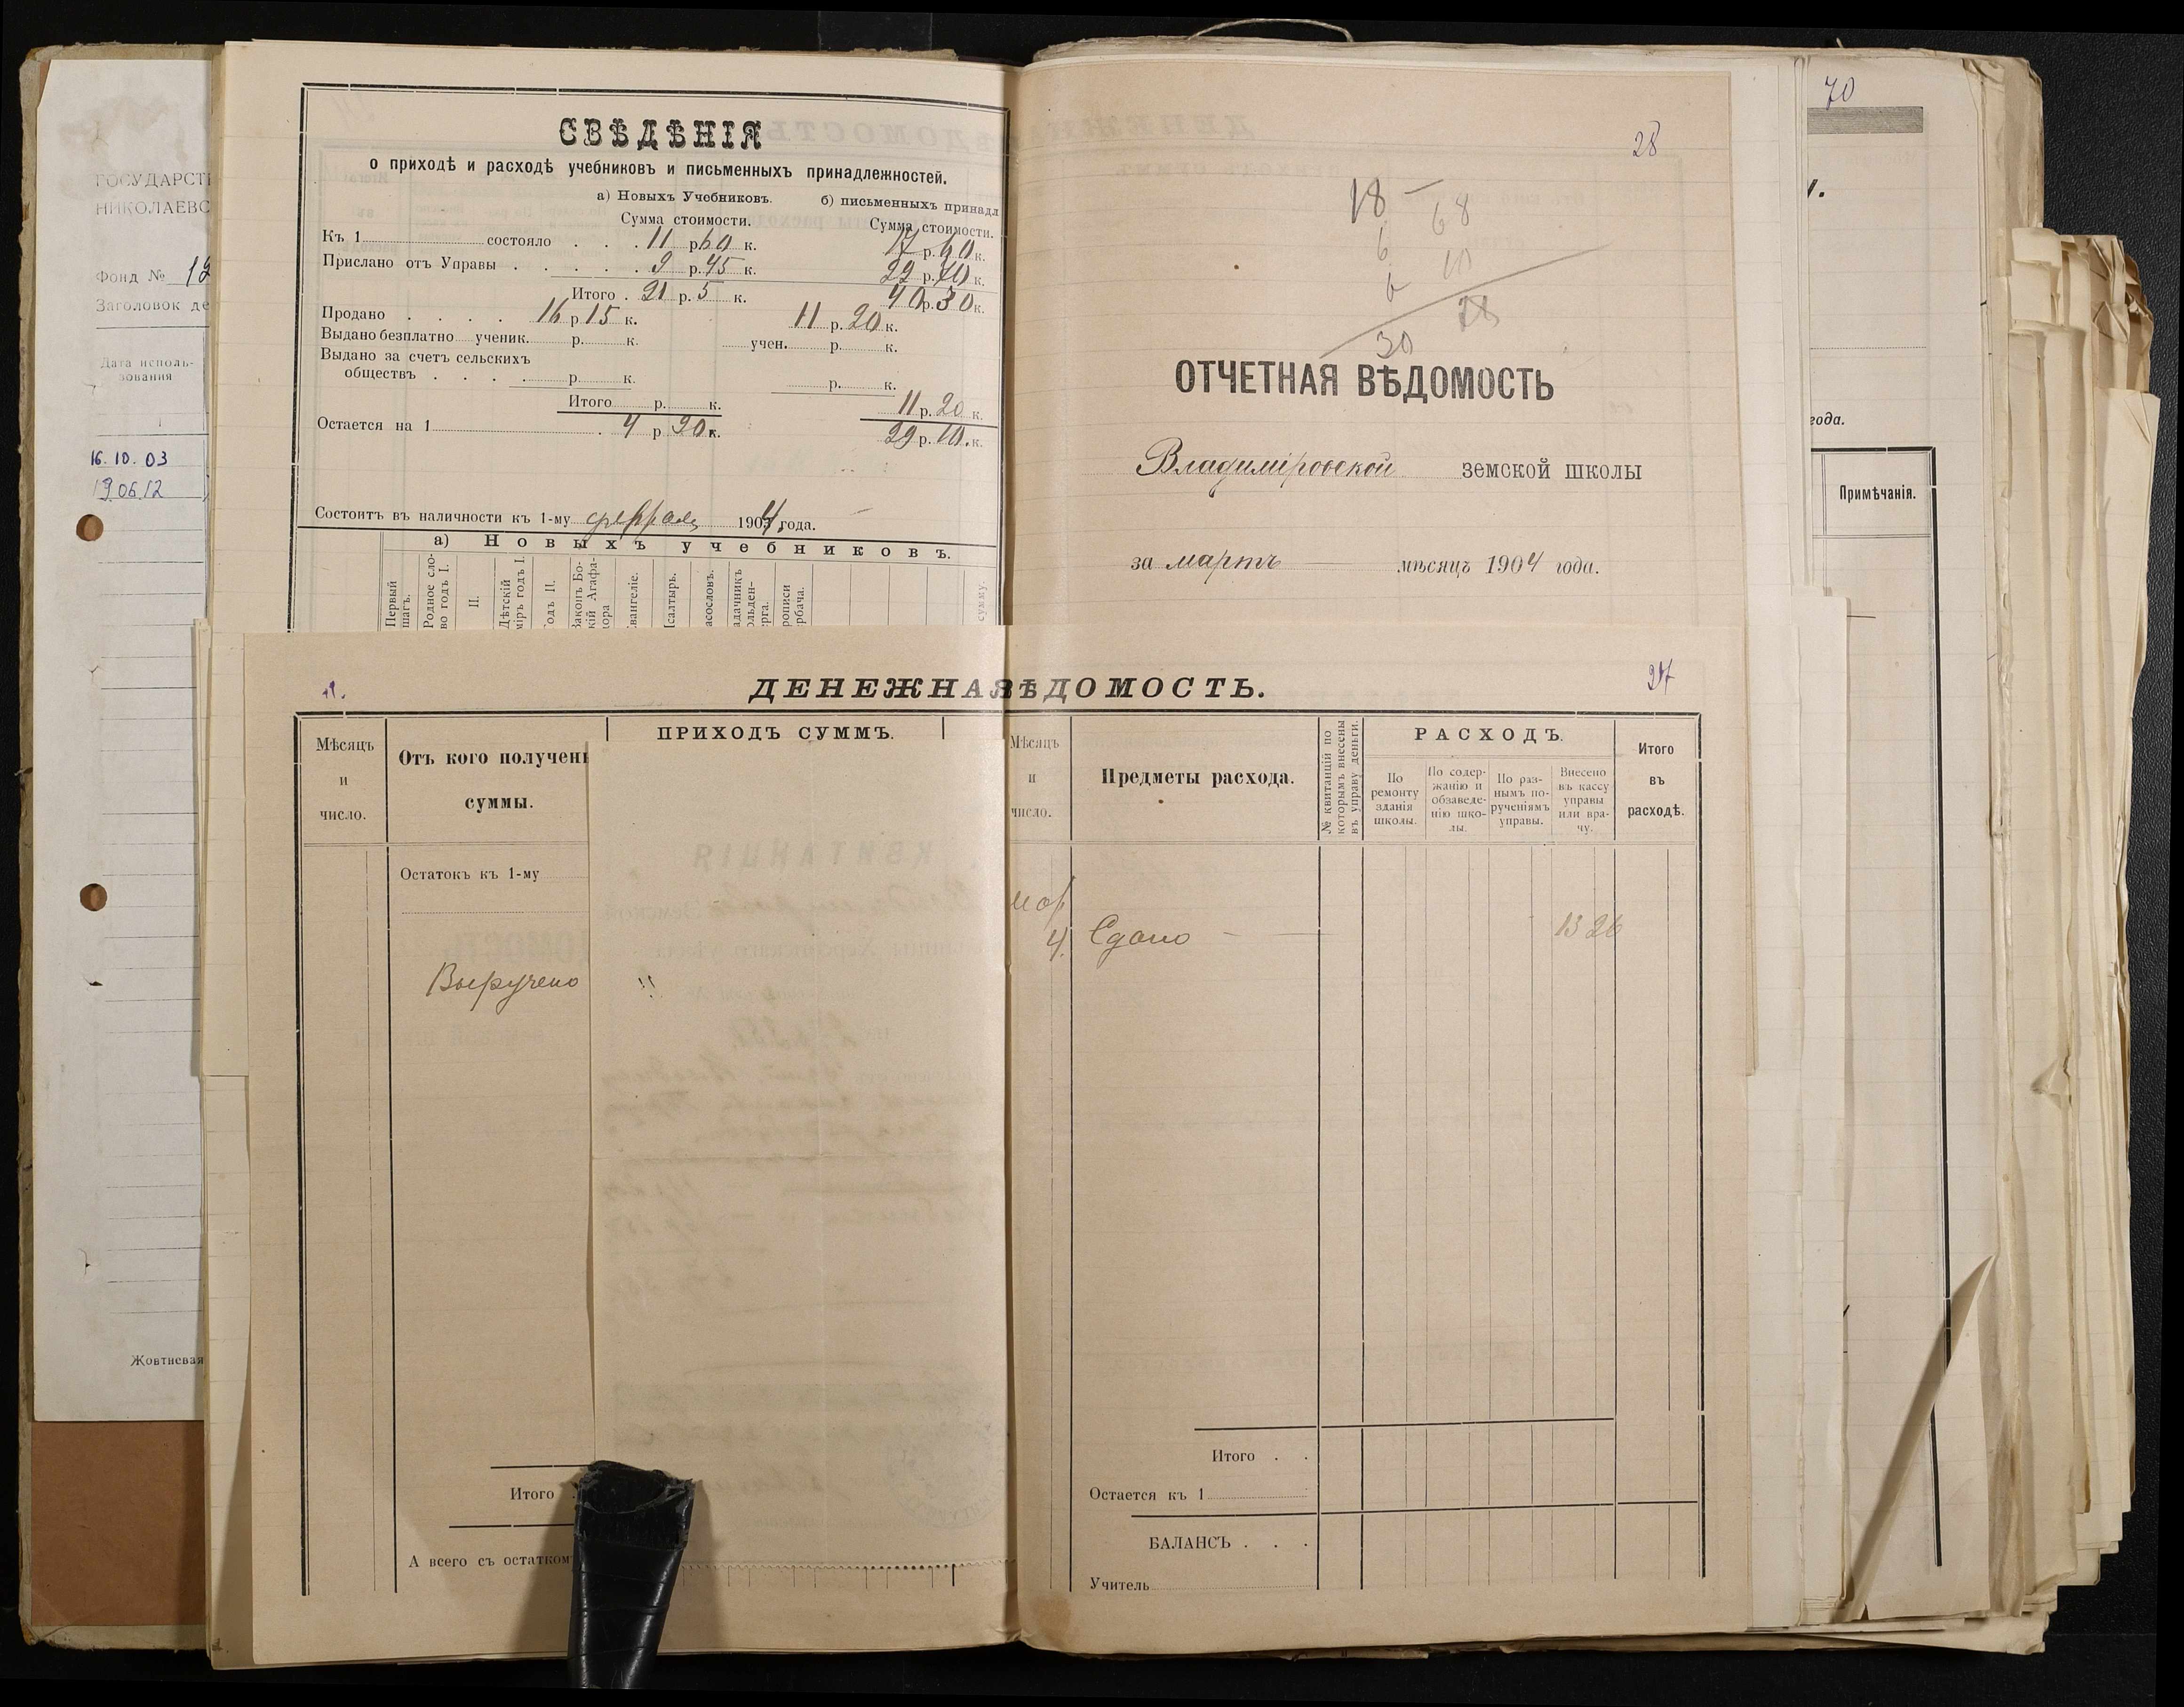 ГОСУДАРСТ
НИКОЛАЕВС
Фонд № 12
Заголовок де
Дата исполь-
зования
1
16.10.03
19.06.12
Жовтневая
СВѢДѢНІЯ
о приходѣ и расходѣ учебниковъ и письменныхъ принадлежностей.
а) Новыхъ Учебниковъ. б) письменныхъ принадл
Сумма стоимости. Сумма стоимости.
Къ 1 состояло . . . 11 р. 60 к. 17 р. 60 к.
Прислано отъ Управы . . . . . 9 р. 45 к. 22 р. 70 к.
Итого . 21 р. 5 к. 40 р. 30 к.
Продано . . . . 16 р 15 к. 11 р. 20 к.
Выдано безплатно ученик. р. к. учен. р. к.
Выдано за счетъ сельскихъ
обществъ . . . . р. к. р. к.
Итого р. к. 11 р. 20 к.
Остается на 1 . 4 р 90 к. 29 р. 10 к.
Состоитъ въ наличности къ 1-му февраля 1904 года.
а) Новыхъ учебниковъ.
Первый
шагъ.
Родное сло-
во годъ I.
II.
Дѣтскій
міръ годъ I.
одъ II.
Законъ Бо-
жій Агафа-
дора
вангеліе.
салтырь.
асословъ.
адачникъ
ольден-
ерга.
рописи
рбача.
сумму.
28
18 –
6 68
6 10
30 78
ОТЧЕТНАЯ ВѢДОМОСТЬ
Владиміровской земской школы
за мартъ мѣсяцъ 1904 года.
70
года.
Примѣчанія.
ДЕНЕЖНАЯ
ѢДОМОСТЬ.
27
Мѣсяцъ
и
число.
Отъ кого получен
суммы.
ПРИХОДЪ СУММЪ.
Остатокъ къ 1-му
Выручено
Итого .
А всего съ остатком
Мѣсяцъ
и
число.
Предметы расхода.
№ квитанцій по
которымъ внесены
въ управу деньги.
РАСХОДЪ.
По
ремонту
зданія
школы.
По содер-
жанію и
обзаведе-
нію шко-
лы.
По раз-
нымъ по-
рученіямъ
управы.
Внесено
въ кассу
управы
или вра-
чу.
Итого
въ
расходѣ.
мар
4. Сдано 13 26
Итого . .
Остается къ 1
БАЛАНСЪ . . .
Учитель